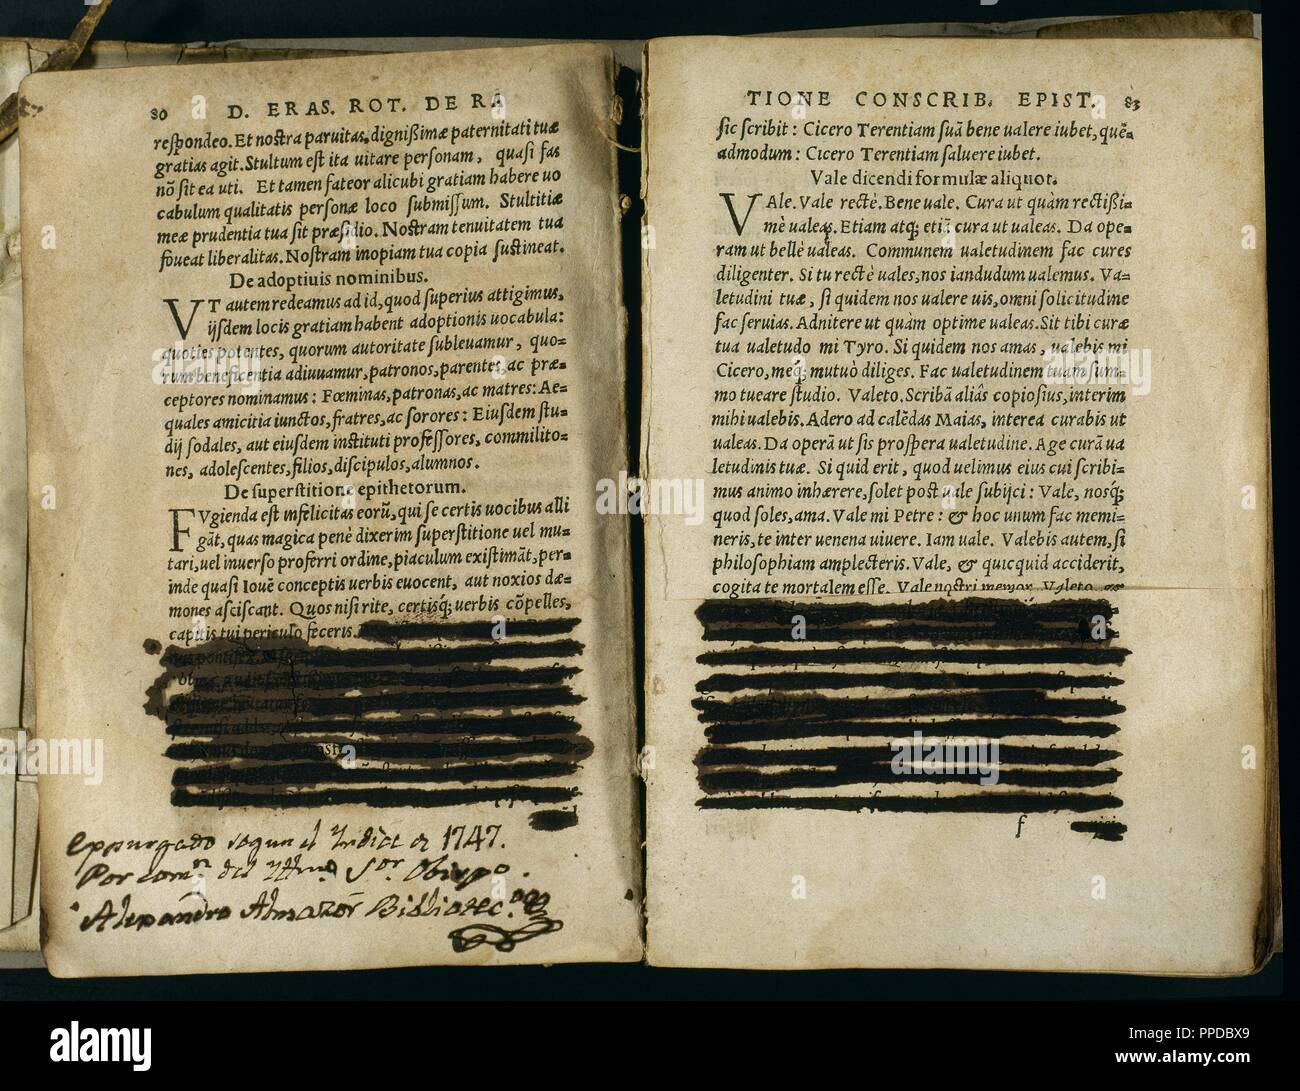 80 D. ERAS. ROT. DE RA
respondeo. Et nostra paruitas, dignißimæ paternitati tuæ
gratias agit. Stultum est ita uitare personam, quasi fas
nõ sit ea uti. Et tamen fateor alicubi gratiam habere uo
cabulum qualitatis personæ loco submissum. Stultitiæ
meæ prudentia tua sit præsidio. Nostram tenuitatem tua
foueat liberalitas. Nostram inopiam tua copia sustineat.
De adoptiuis nominibus.
VT autem redeamus ad id, quod superius attigimus,
ijsdem locis gratiam habent adoptionis uocabula:
quoties potentes, quorum autoritate subleuamur, quo=
rum beneficentia adiuuamur, patronos, parentes, ac præ=
ceptores nominamus: Fœminas, patronas, ac matres: Ae=
quales amicitia iunctos, fratres, ac sorores: Eiusdem stu=
dij sodales, aut eiusdem instituti professores, commilito=
nes, adolescentes, filios, discipulos, alumnos.
De superstitione epithetorum.
FVgienda est infelicitas eorũ, qui se certis uocibus alli
gãt, quas magica penè dixerim superstitione uel mu=
tari, uel inuerso proferri ordine, piaculum existimãt, per=
inde quasi Iouẽ conceptis uerbis euocent, aut noxios dæ=
mones asciscant. Quos nisi rite, certisq; uerbis cõpelles,
capitis tui periculo feceris.
expurgado segun el Yndice de 1747.
Por com.n del Yllmo. Sor. Obispo.
Alexandro Almazór Bibliotec.o
TIONE CONSCRIB. EPIST. 83
sic scribit: Cicero Terentiam suã bene ualere iubet, quẽ=
admodum: Cicero Terentiam saluere iubet.
Vale dicendi formulæ aliquot.
VAle. Vale rectè. Bene uale. Cura ut quàm rectißi=
mè ualeas. Etiam atq; etiã cura ut ualeas. Da ope=
ram ut bellè ualeas. Communem ualetudinem fac cures
diligenter. Si tu rectè uales, nos iandudum ualemus. Va=
letudini tuæ, si quidem nos ualere uis, omni solicitudine
fac seruias. Adnitere ut quàm optime ualeas. Sit tibi curæ
tua ualetudo mi Tyro. Si quidem nos amas, ualebis mi
Cicero, meq; mutuò diliges. Fac ualetudinem tuam sum=
mo tueare studio. Valeto. Scribã aliâs copiosius, interim
mihi ualebis. Adero ad calẽdas Maias, interea curabis ut
ualeas. Da operã ut sis prospera ualetudine. Age curã ua
letudinis tuæ. Si quid erit, quod uelimus eius cui scribi=
mus animo inhærere, solet post uale subijci: Vale, nosq;
quod soles, ama. Vale mi Petre: & hoc unum fac memi=
neris, te inter uenena uiuere. Iam uale. Valebis autem, si
philosophiam amplecteris. Vale, & quicquid acciderit,
cogita te mortalem esse. Vale nostri memor. Valeto &
f
alamy
Image ID: PPDBX9
www.alamy.com